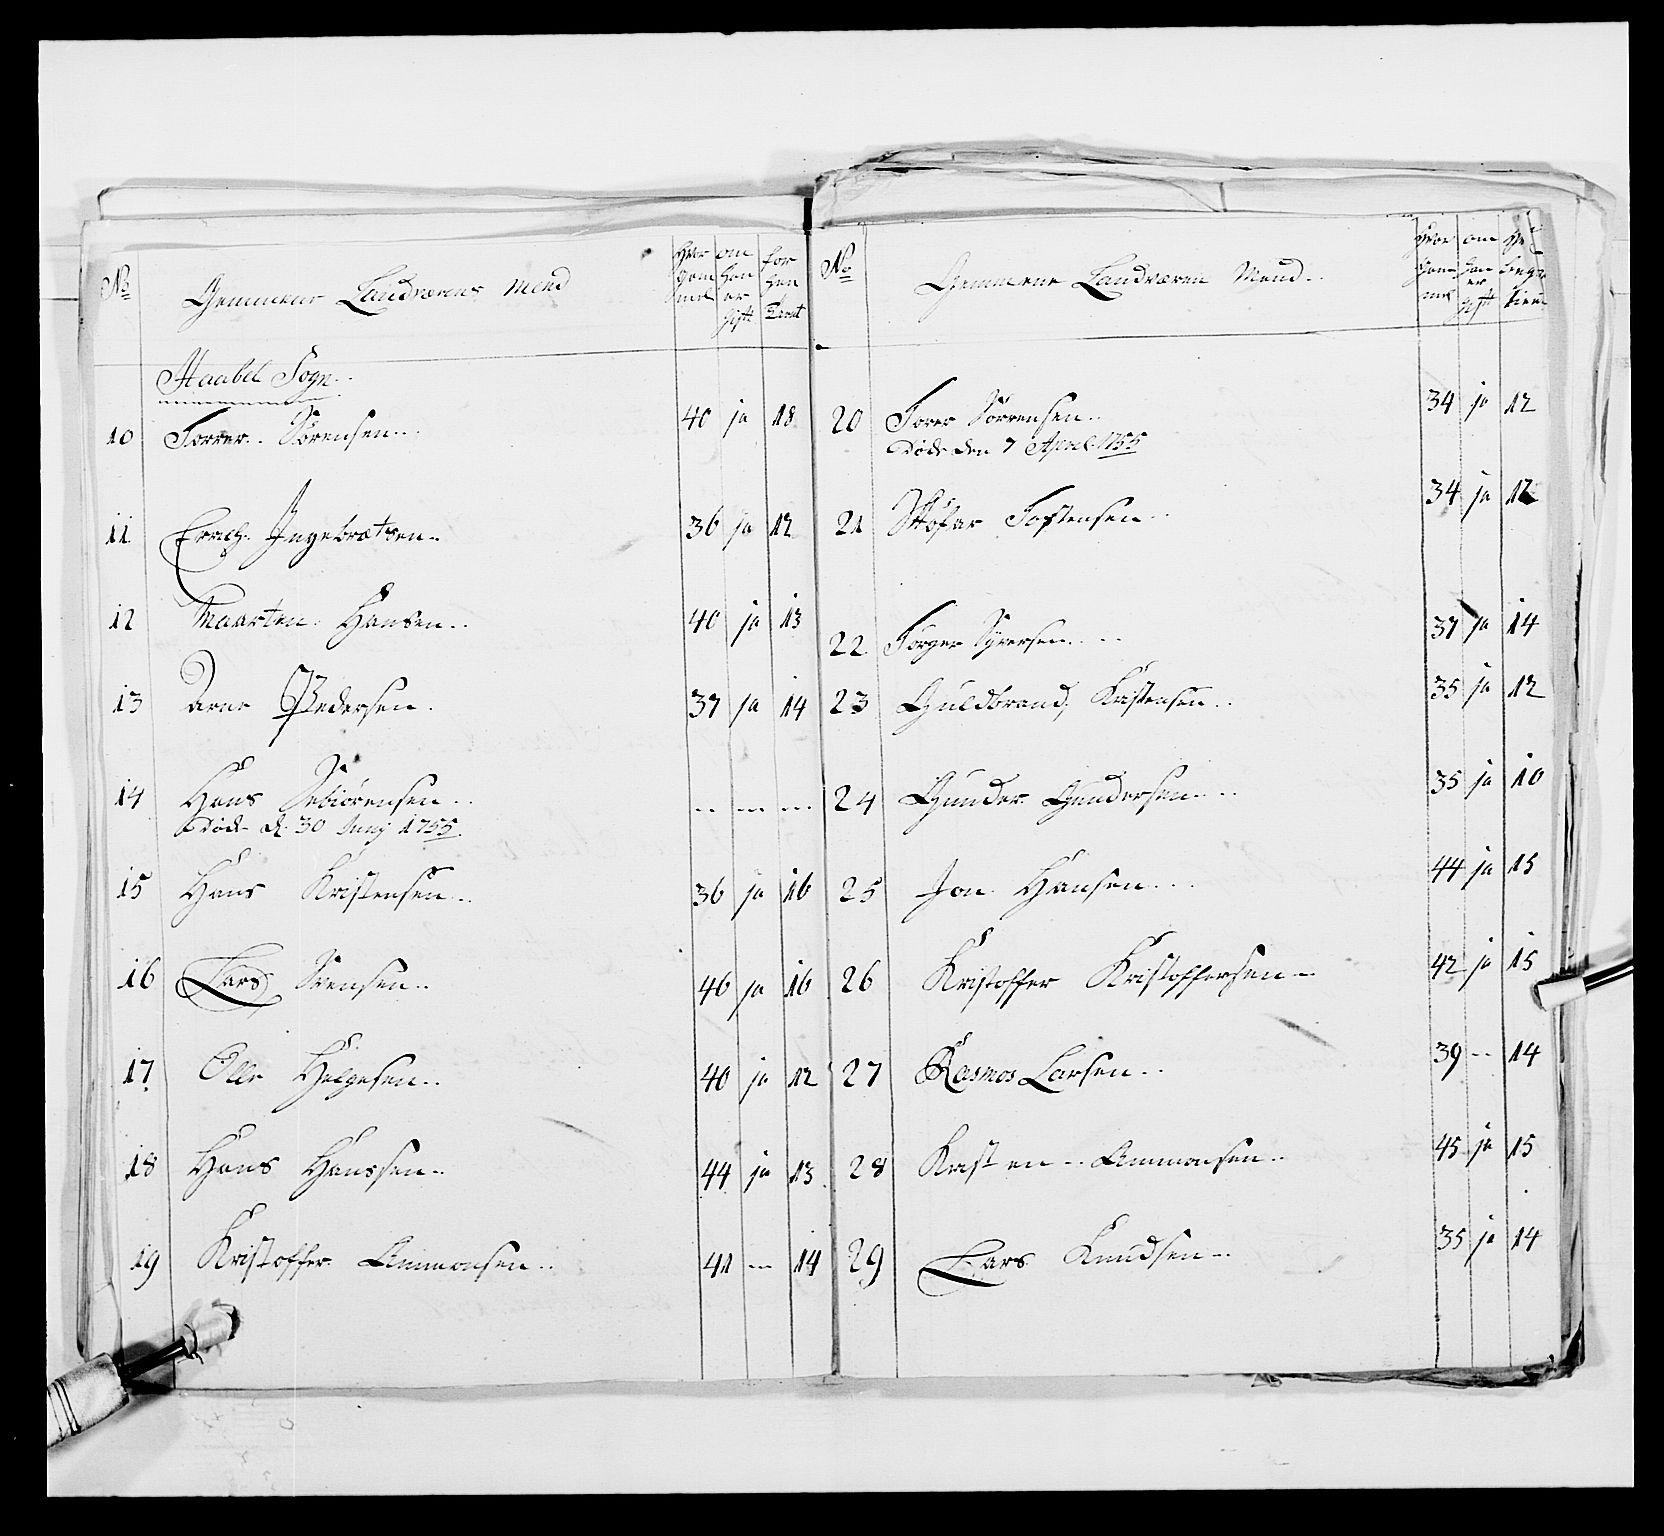 No
Gemmene Landværens Mend
Hvor gam mel
om han er gift
for hen tient
Haabel Sogn
10 Torrer Sørensen 40 ja 18
11 Errich Ingebrætsen 36 ja 12
12 Maarten Hansen 40 ja 13
13 Arne Pedersen 37 ja 14
14 Hans Sebiørensen -- -- --
Døde d. 30 Junj 1755
15 Hans Kristensen 36 ja 16
16 Lars Svensen 46 ja 16
17 Olle Helgesen 40 ja 12
18 Hans Hanssen 44 ja 13
19 Kristoffer Ammonsen 41 -- 14
No
Gemmene Landværen Mend
Hvor gam mel
om han er gift
20 Torer Sørrensen 34 ja 12
Døde den 7 April 1755
21 Tostensen 34 ja 12
22 Torger Syversen 37 ja 14
23 Guldbrand Kristensen 35 ja 12
24 Gunder Gundersen 35 ja 10
25 Jon Hansen 44 ja 15
26 Kristoffer Kristoffersen 42 ja 15
27 Rasmos Larsen 39 -- 14
28 Kristen Ammonsen 45 ja 15
29 Lars Knudsen 35 ja 14